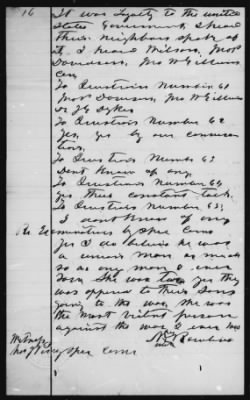 16
It was Loyalty to the united
states Government. I heard
these neighbors speak of
it. I heard Wilson, Mors
Davidson, Mrs W Gillums
To Question Number 61
Mors Davidson, Mrs W Gillums
or J G Sykes
To Questions Number 62
Yes, yes by our conversa
tion.
To Questions Number 63
Dont Know of any
To Questions Number 64
yes their constant talk.
To Questions Number 65,
I dont Know of any
Re Examination by Spec Com
Yes I do believe he was
a union man as much
so as any man I ever
saw. She was too yes they
was opposed to their Sons
going to the war, she was
the most violent person
against the war I ever saw
Spec Com